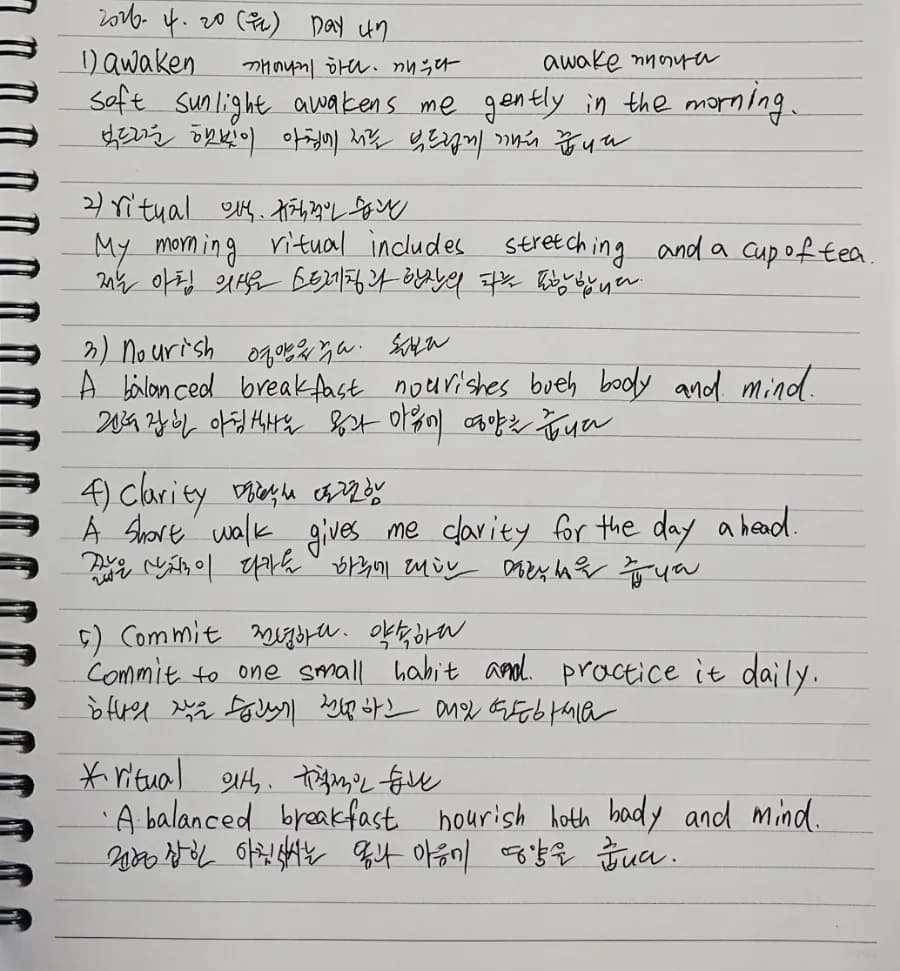 2026. 4. 20 (월) Day 47
1) awaken 깨어나게 하다. 깨우다 awake 깨어나다
Soft sunlight awakens me gently in the morning.
부드러운 햇빛이 아침에 저를 부드럽게 깨워 줍니다
2) ritual 의식. 규칙적인 습관
My morning ritual includes stretching and a cup of tea.
저는 아침 의식은 스트레칭과 한잔의 차를 포함합니다.
3) nourish 영양을 주다. 돌보다
A balanced breakfast nourishes both body and mind.
균형 잡힌 아침식사는 몸과 마음에 영양을 줍니다
4) Clarity 명확성 또렷함
A short walk gives me clarity for the day ahead.
짧은 산책이 다가올 하루에 대한 명확성을 줍니다
5) Commit 전념하다. 약속하다
Commit to one small habit and practice it daily.
하나의 작은 습관에 전념하고 매일 하세요
* ritual 의식. 규칙적인 습관
A balanced breakfast nourish both bady and mind.
잡힌 아침식사는 몸과 마음에 영양을 줍니다.